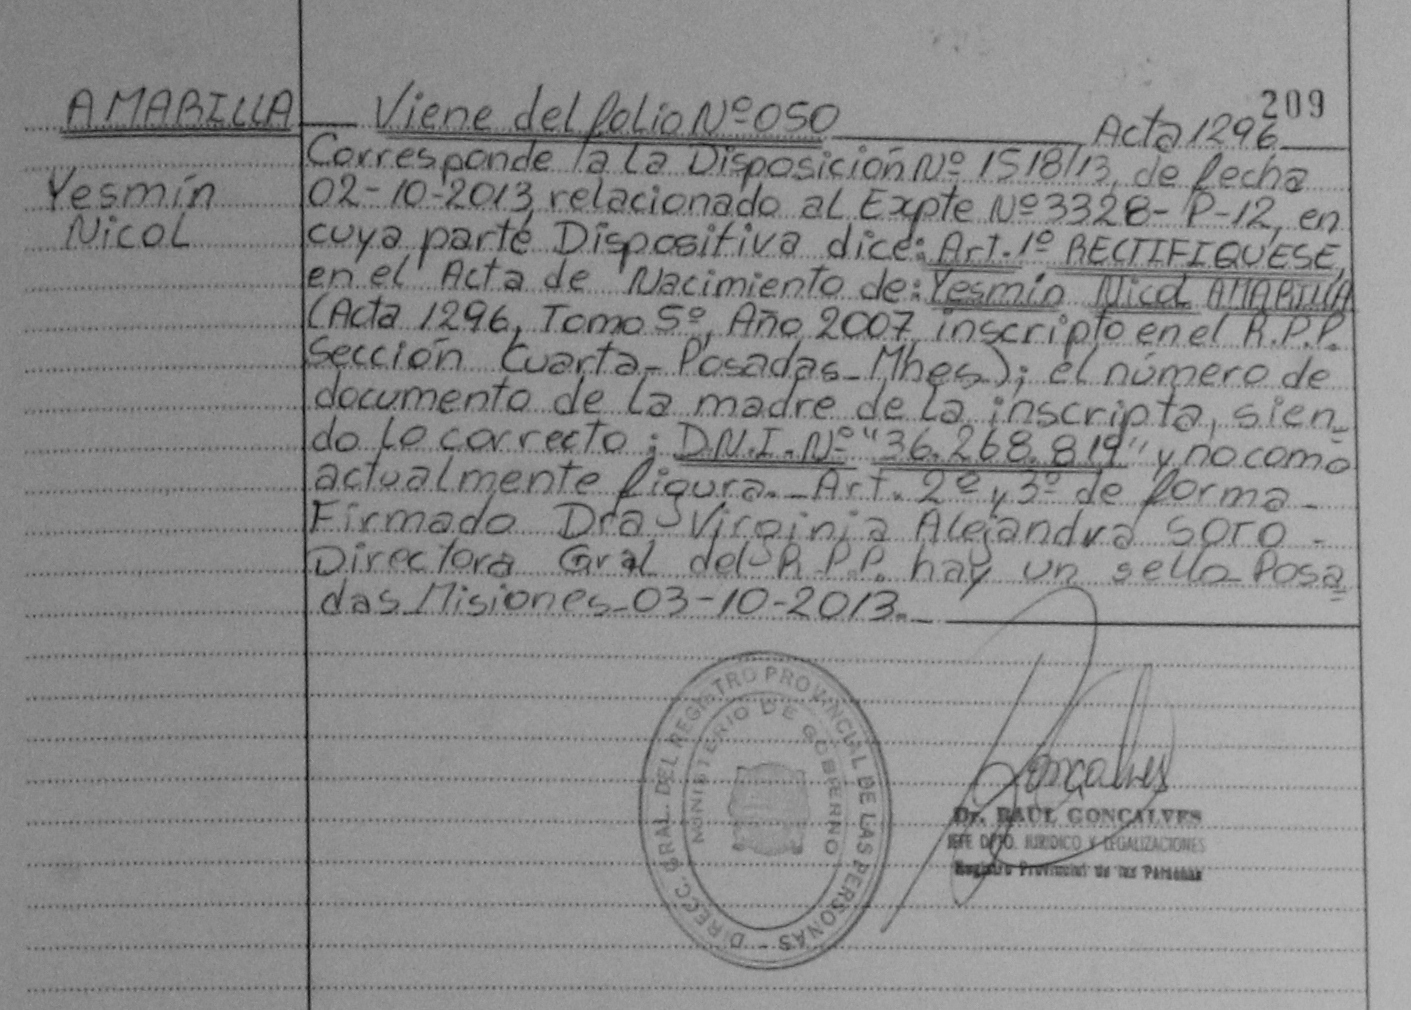 209
AMARILLA Viene del folio Nº 050 Acta 1296
Corresponde a la Disposición Nº 1518/13, de fecha
Yesmín 02-10-2013, relacionado al Expte Nº 3328-P-12, en
Nicol cuya parte Dispositiva dice: Art. 1º RECTIFIQUESE,
en el Acta de Nacimiento de: Yesmín Nicol AMARILLA
(Acta 1296, Tomo 5º, Año 2007, inscripto en el R.P.P.
Sección Cuarta-Posadas-Mnes); el número de
documento de la madre de la inscripta, sien-
do lo correcto: D.N.I. Nº "36.268.819" y no como
actualmente figura. Art. 2º y 3º de forma-
Firmado Dra Virginia Alejandra SOTO-
Directora Gral del R.P.P. hay un sello Posa
das Misiones-03-10-2013.
DIRECC. GRAL. DEL REGISTRO PROVINCIAL DE LAS PERSONAS -
MINISTERIO DE GOBIERNO
Gonçalves
Dr. RAUL GONÇALVES
JEFE DPTO. JURIDICO Y LEGALIZACIONES
Registro Provincial de las Personas